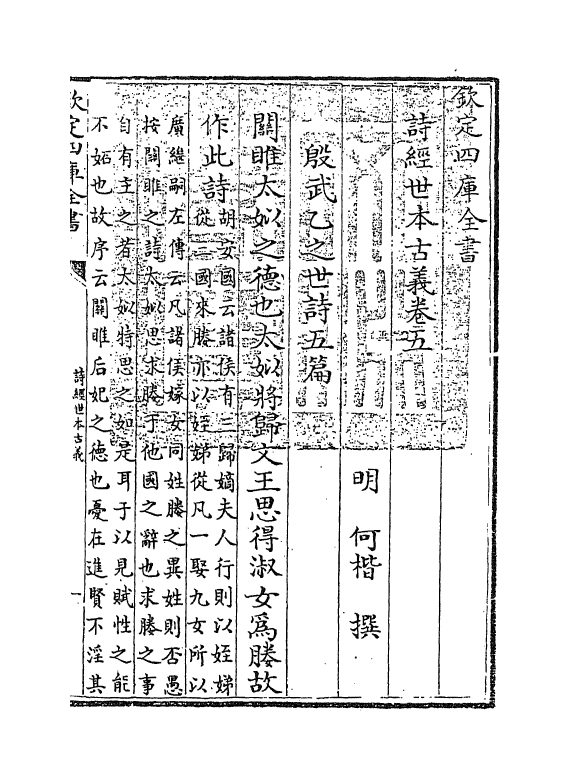 欽定四庫全書
詩經世本古義卷五
明 何楷 撰
殷武乙之世詩五篇
關雎太姒之德也太姒將歸文王思得淑女為媵故
作此詩
胡安國云諸侯有三歸嫡夫人行則以姪娣
從二國來媵亦以姪娣從凡一娶九女所以
廣繼嗣左傳云凡諸侯嫁女同姓媵之異姓則否愚
按關雎之詩太姒思求媵于他國之辭也求媵之事
自有主之者太姒特思之如是耳于以見賦性之能
不妬也故序云關雎后妃之德也憂在進賢不淫其
欽定四庫全書
詩經世本古義
一